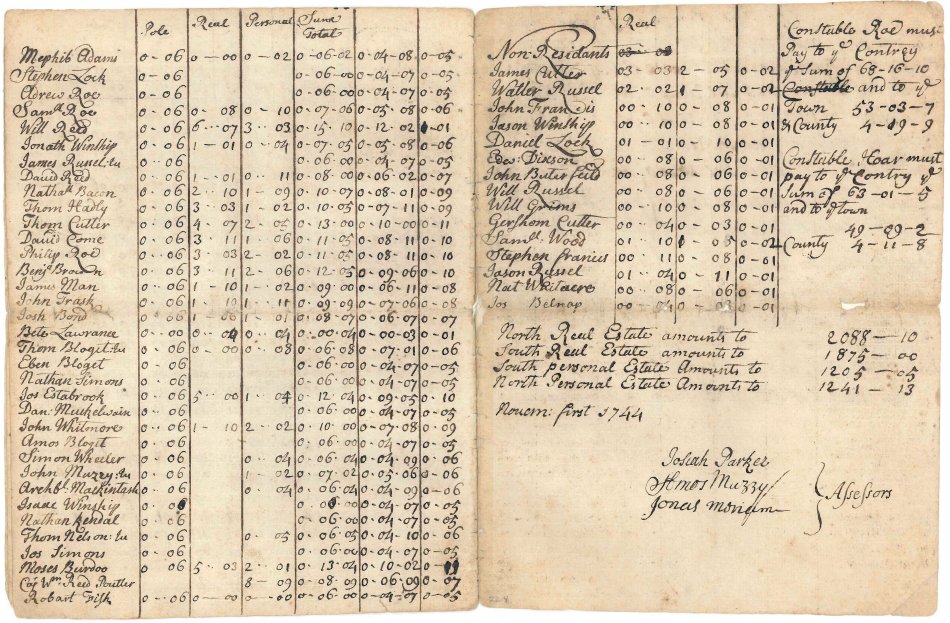 Pole Real Personal Sum Total
Mephib Adams 0-06 0-00 0-02 0-06-02 0-04-08 0-05
Stephen Lock 0-06 0-06-00 0-04-07 0-05
Adrew Roe 0-06 0-06-00 0-04-07 0-05
Saml Roe 0-06 0-08 0-10 0-07-06 0-05-08 0-06
Will Reed 0-06 6-07 3-03 0-15-10 0-12-02 1-01
Jonath Winship 0-06 1-01 0-04 0-07-05 0-05-08 0-06
James Russel 0-06 0-06-00 0-04-07 0-05
David Reed 0-06 1-01 0-11 0-08-00 0-06-02 0-07
Nathal Bacon 0-06 2-10 1-09 0-10-07 0-08-01 0-09
Thom Hadly 0-06 3-03 1-02 0-10-05 0-07-11 0-09
Thom Cutler 0-06 4-07 2-05 0-13-00 0-10-00 0-11
David Come 0-06 3-11 1-06 0-11-05 0-08-11 0-10
Philip Roe 0-06 3-03 2-02 0-11-05 0-08-11 0-10
Benja Brown 0-06 3-11 2-06 0-12-05 0-09-06 0-10
James Man 0-06 1-10 1-02 0-09-00 0-06-11 0-08
John Trask 0-06 1-10 1-11 0-09-09 0-07-06 0-08
Josh Bond 0-06 1-06 1-01 0-08-07 0-06-07 0-07
Bete Lawrance 0-00 0-04 0-04 0-00-04 0-00-03 0-01
Thom Blogit 0-06 0-00 0-08 0-06-08 0-07-01 0-06
Eben Bloget 0-06 0-06-00 0-04-07 0-05
Nathan Simons 0-06 0-06-00 0-04-07 0-05
Jos Estabrook 0-06 5-00 1-04 0-12-04 0-09-05 0-10
Dan: Muckelwain 0-06 0-06-00 0-04-07 0-05
John Whitmore 0-06 1-10 2-02 0-10-00 0-07-08 0-09
Amos Blogit 0-06 0-06-00 0-04-07 0-05
Simon Wheeler 0-06 0-04 0-06-04 0-04-09 0-06
John Muzzy 0-06 1-02 0-07-02 0-05-06 0-06
Archbl Mackintash 0-06 0-04 0-06-04 0-04-09 0-06
Isaac Winship 0-06 0-06-00 0-04-07 0-05
Nathan Kendal 0-06 0-06-00 0-04-07 0-05
Thom Nelson 0-06 0-05 0-06-05 0-04-10 0-06
Jos Simons 0-06 0-06-00 0-04-07 0-05
Moses Burdoo 0-06 5-03 2-01 0-13-04 0-10-02 0-11
Wm Reed 8-09 0-08-09 0-06-09 0-07
Robart Fish 0-06 0-00 0-00 0-06-00 0-04-07 0-05
Real
Non-Residants
James Cutler 03-03 2-05 0-02
Walter Russel 02-02 1-07 0-02
John Francis 00-10 0-08 0-01
Jason Winship 00-10 0-08 0-01
Daniel Lock 01-01 0-10 0-01
Edw Dixson 00-08 0-06 0-01
John Buterfeild 00-08 0-06 0-01
Will Russel 00-08 0-06 0-01
Will Grims 00-08 0-06 0-01
Gershom Cutler 00-04 0-03 0-01
Saml Wood 01-10 1-05 0-02
Stephen francies 00-11 0-08 0-01
Jason Russel 01-04 0-11 0-01
Nat Whitacre 00-08 0-06 0-01
Jos Belnap 00-04
Constuble Roe must
Pay to ye Contrey
ye Sum of 68-16-10
Constuble and to ye
Town 53-03-7
& County 4-19-9
Constuble Hoar must
pay to ye Contry ye
Sum of 63-01-5
and to ye town
49-09-2
County 4-11-8
North Real Estate amounts to 2088-10
South Real Estate amounts to 1875-00
South personal Estate Amounts to 1205-05
North Personal Estate Amounts to 1241-13
Novem: first 1744
Josiah Parker
Amos Muzzy
Jonas
Assessors